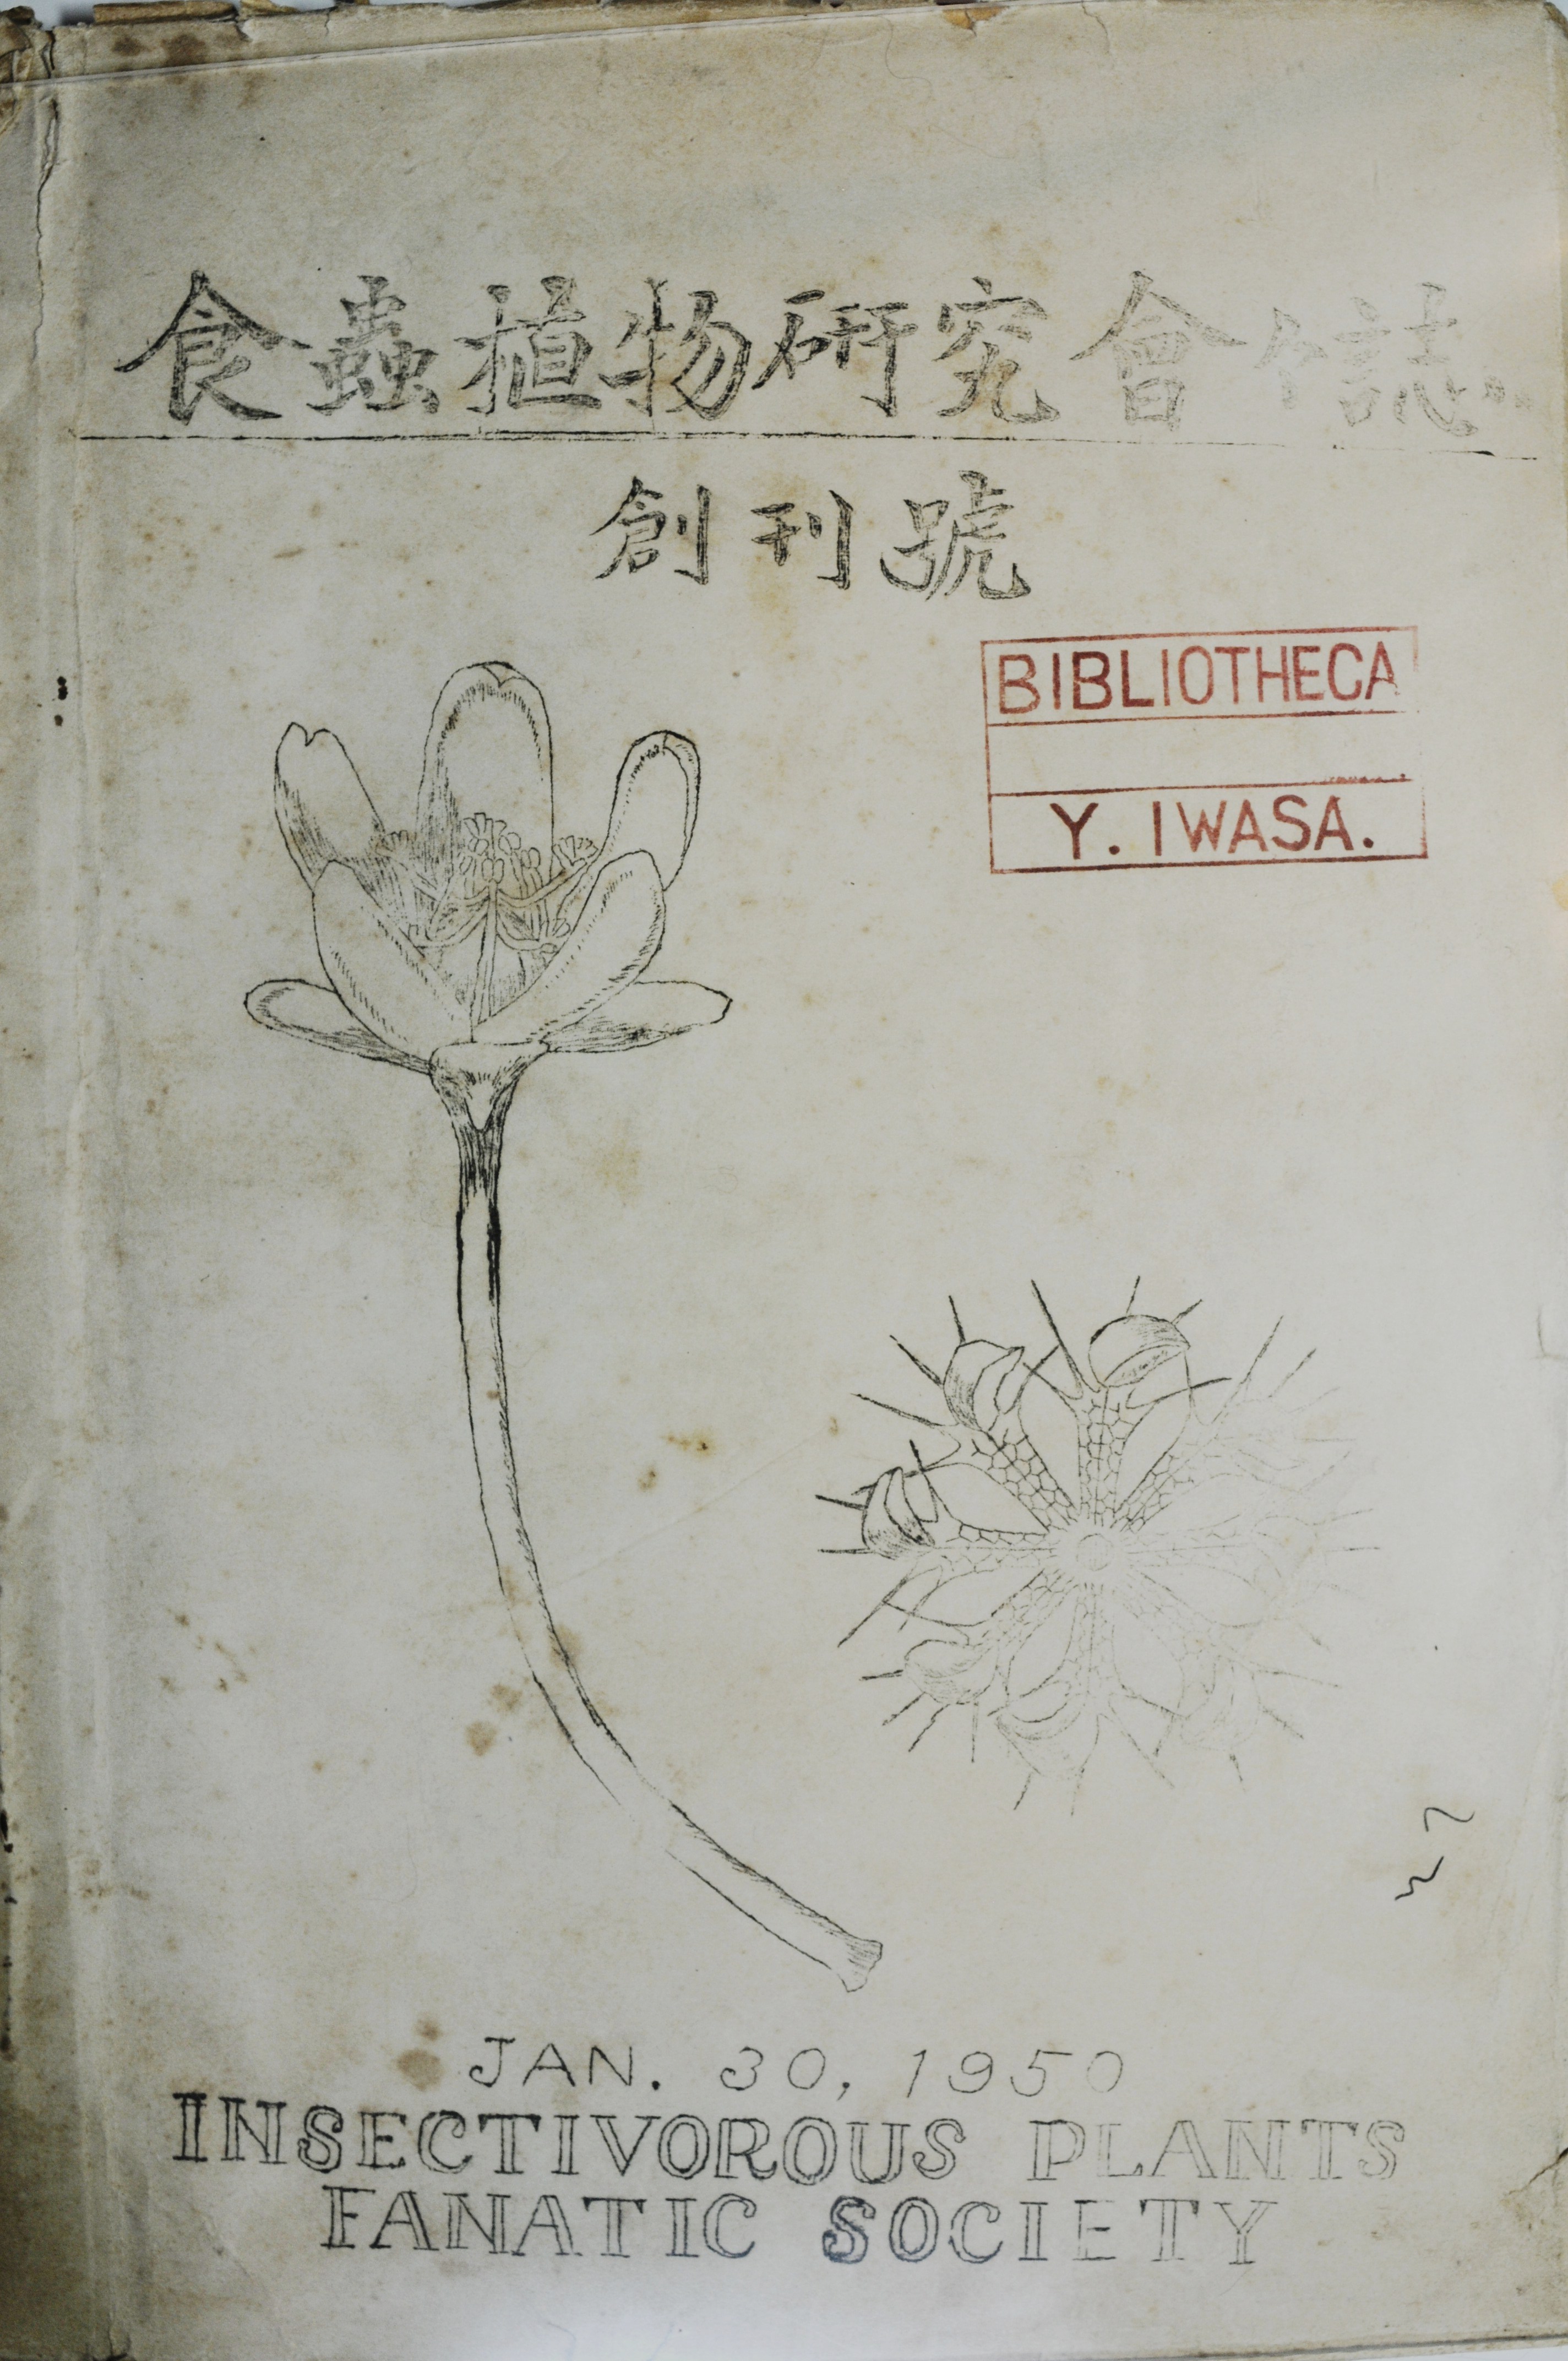 食蟲植物研究會々誌
創刊號
BIBLIOTHECA
Y. IWASA.
JAN. 30, 1950
INSECTIVOROUS PLANTS
FANATIC SOCIETY